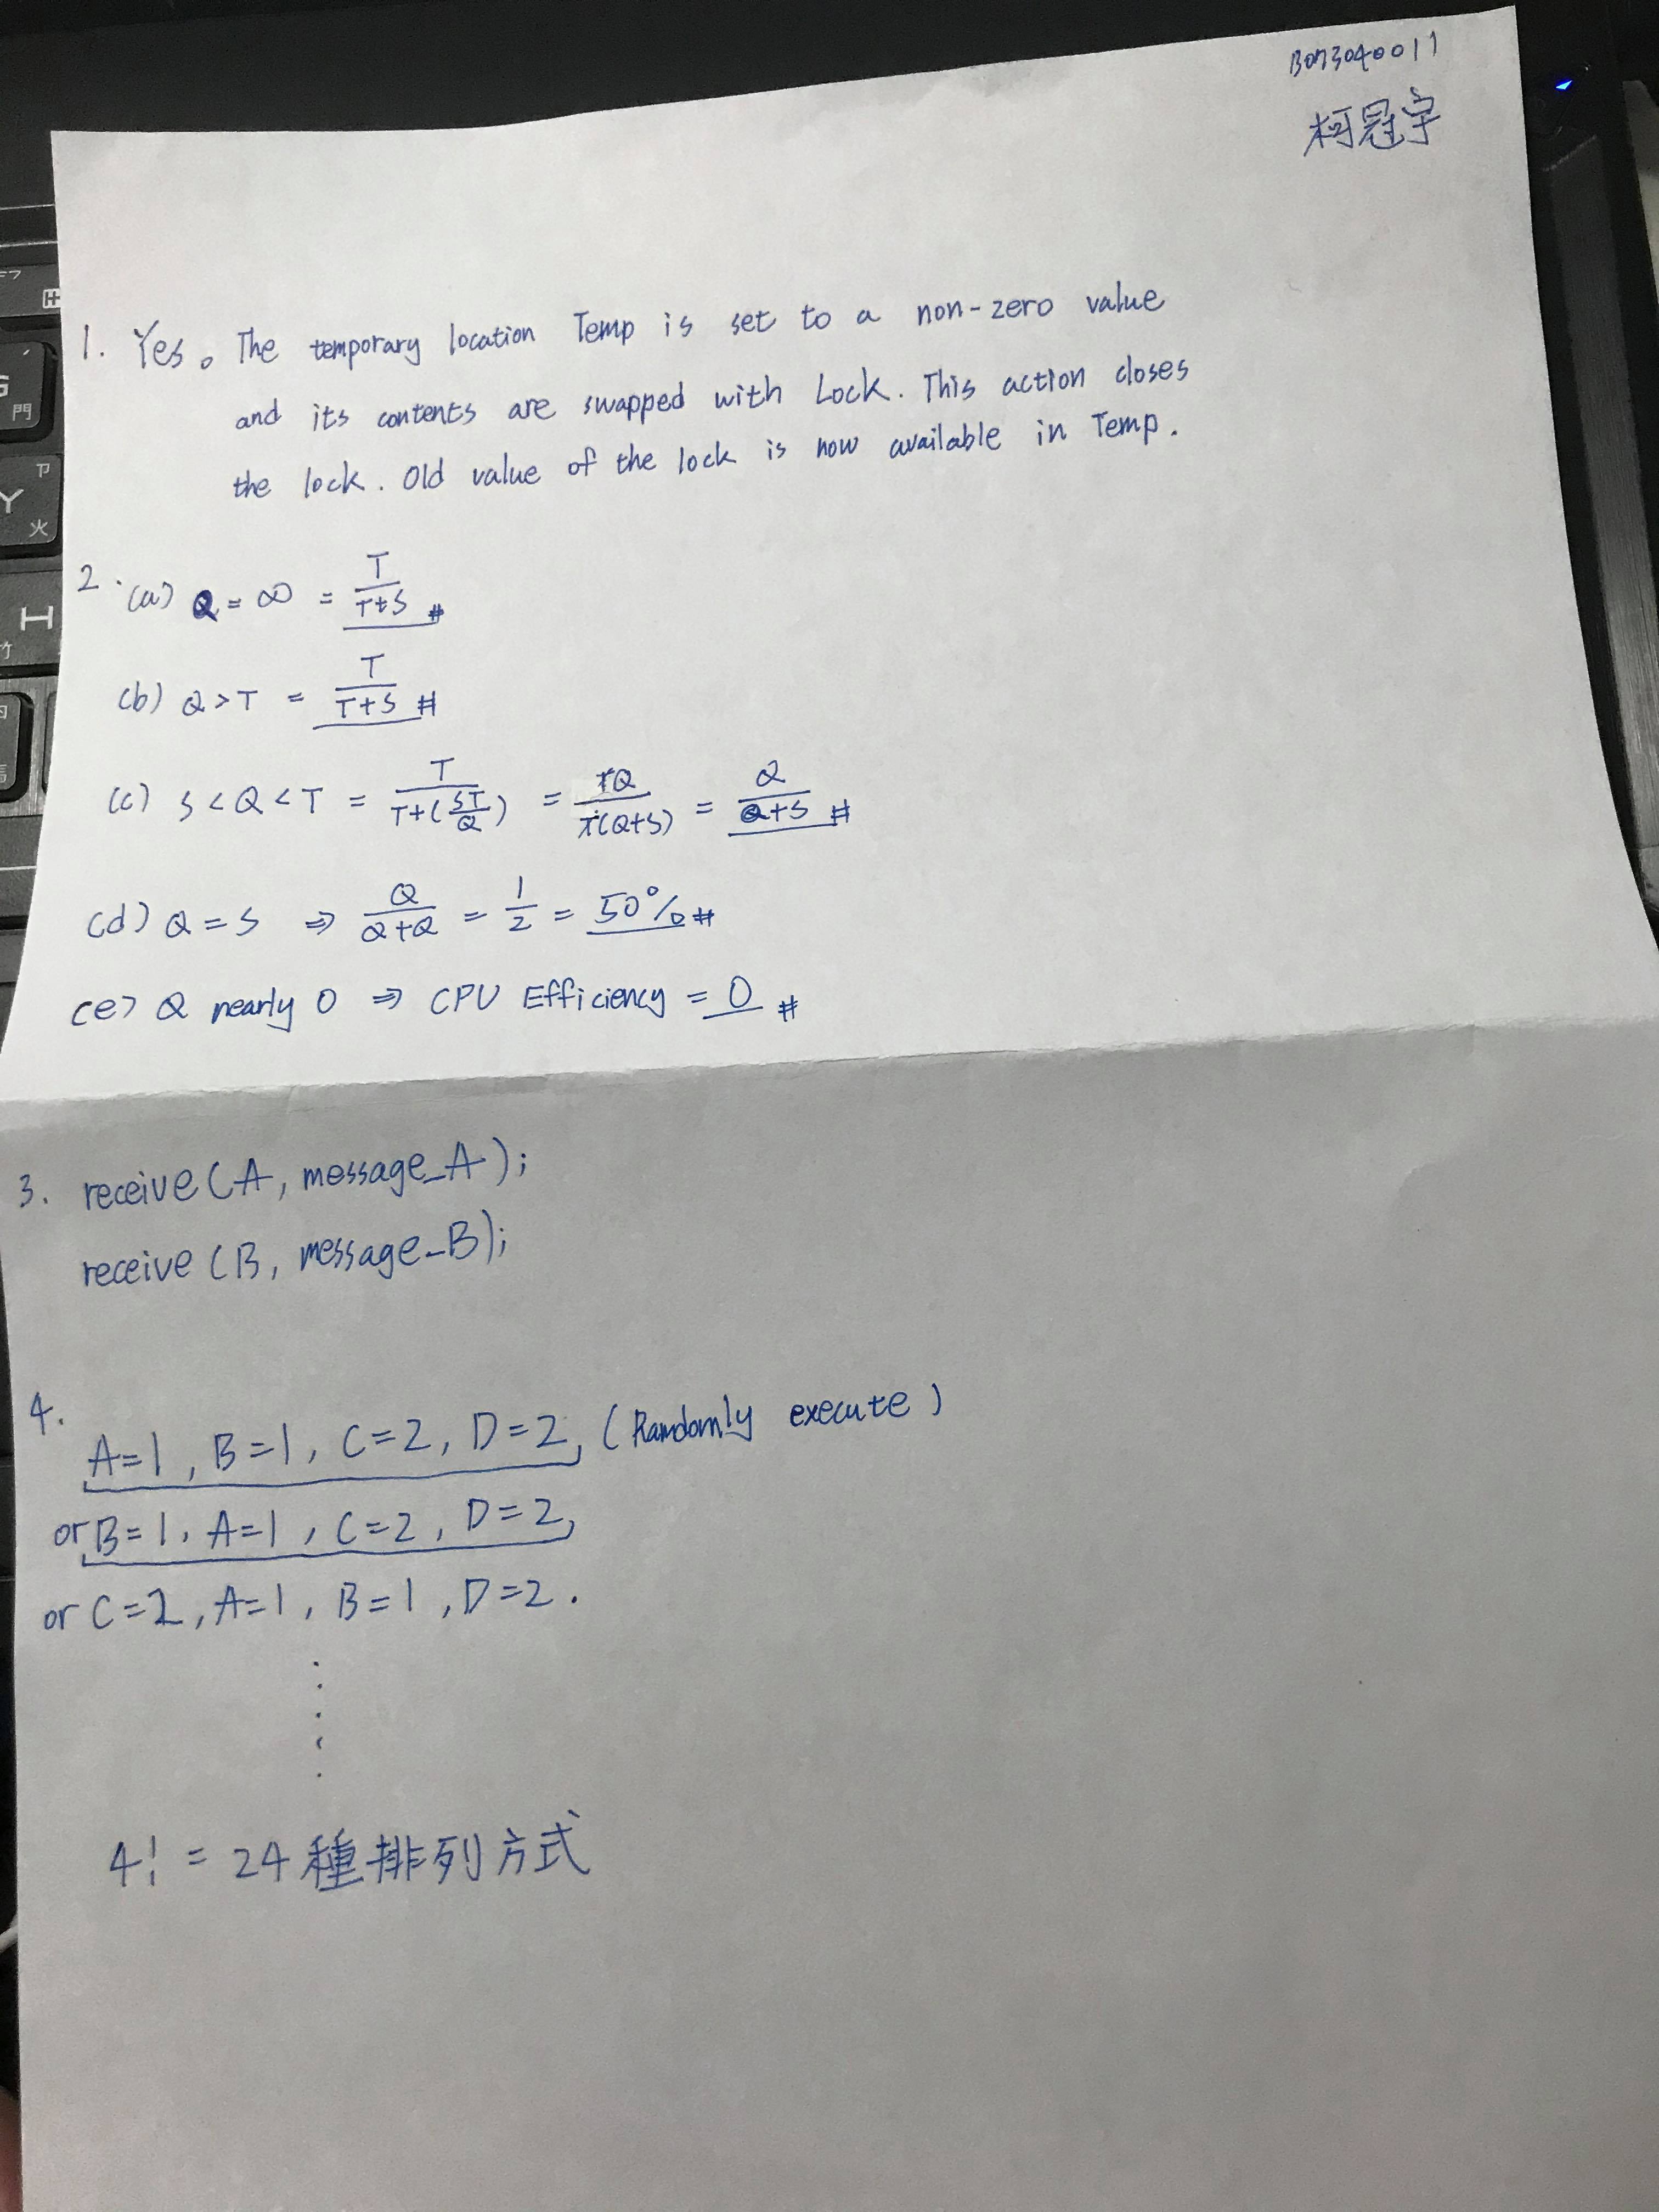 B073040011
柯冠宇
1. Yes。The temporary location Temp is set to a non-zero value
and its contents are swapped with Lock. This action closes
the lock. Old value of the lock is now available in Temp.
2. (a) Q = ∞ = T/(T+S) #
(b) Q > T = T/(T+S) #
(c) S < Q < T = T/(T+(ST/Q)) = TQ/(T(Q+S)) = Q/(Q+S) #
(d) Q = S ⇒ Q/(Q+Q) = 1/2 = 50% #
(e) Q nearly 0 ⇒ CPU Efficiency = 0 #
3. receive (A, message_A);
receive (B, message_B);
4.
A=1, B=1, C=2, D=2, (Randomly execute)
or B=1, A=1, C=2, D=2,
or C=2, A=1, B=1, D=2.
4! = 24 種排列方式
F7
G
門
Y
卩
火
H
竹